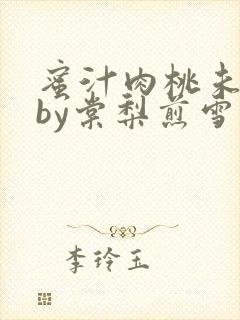 蜜汁肉桃未
by棠梨煎雪
李玲玉